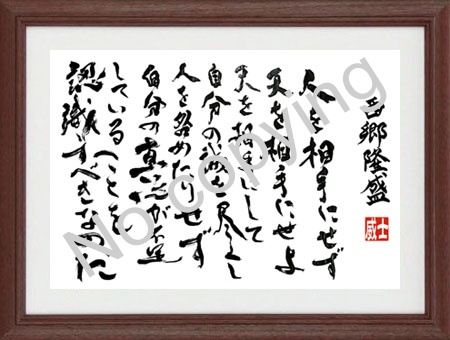 西郷隆盛
人を相手にせず
天を相手にせよ
天を相手にして
自分の誠を尽くし
人を咎めたりせず
自分の真心が不足
していることを
認識すべきなのだ
No copying